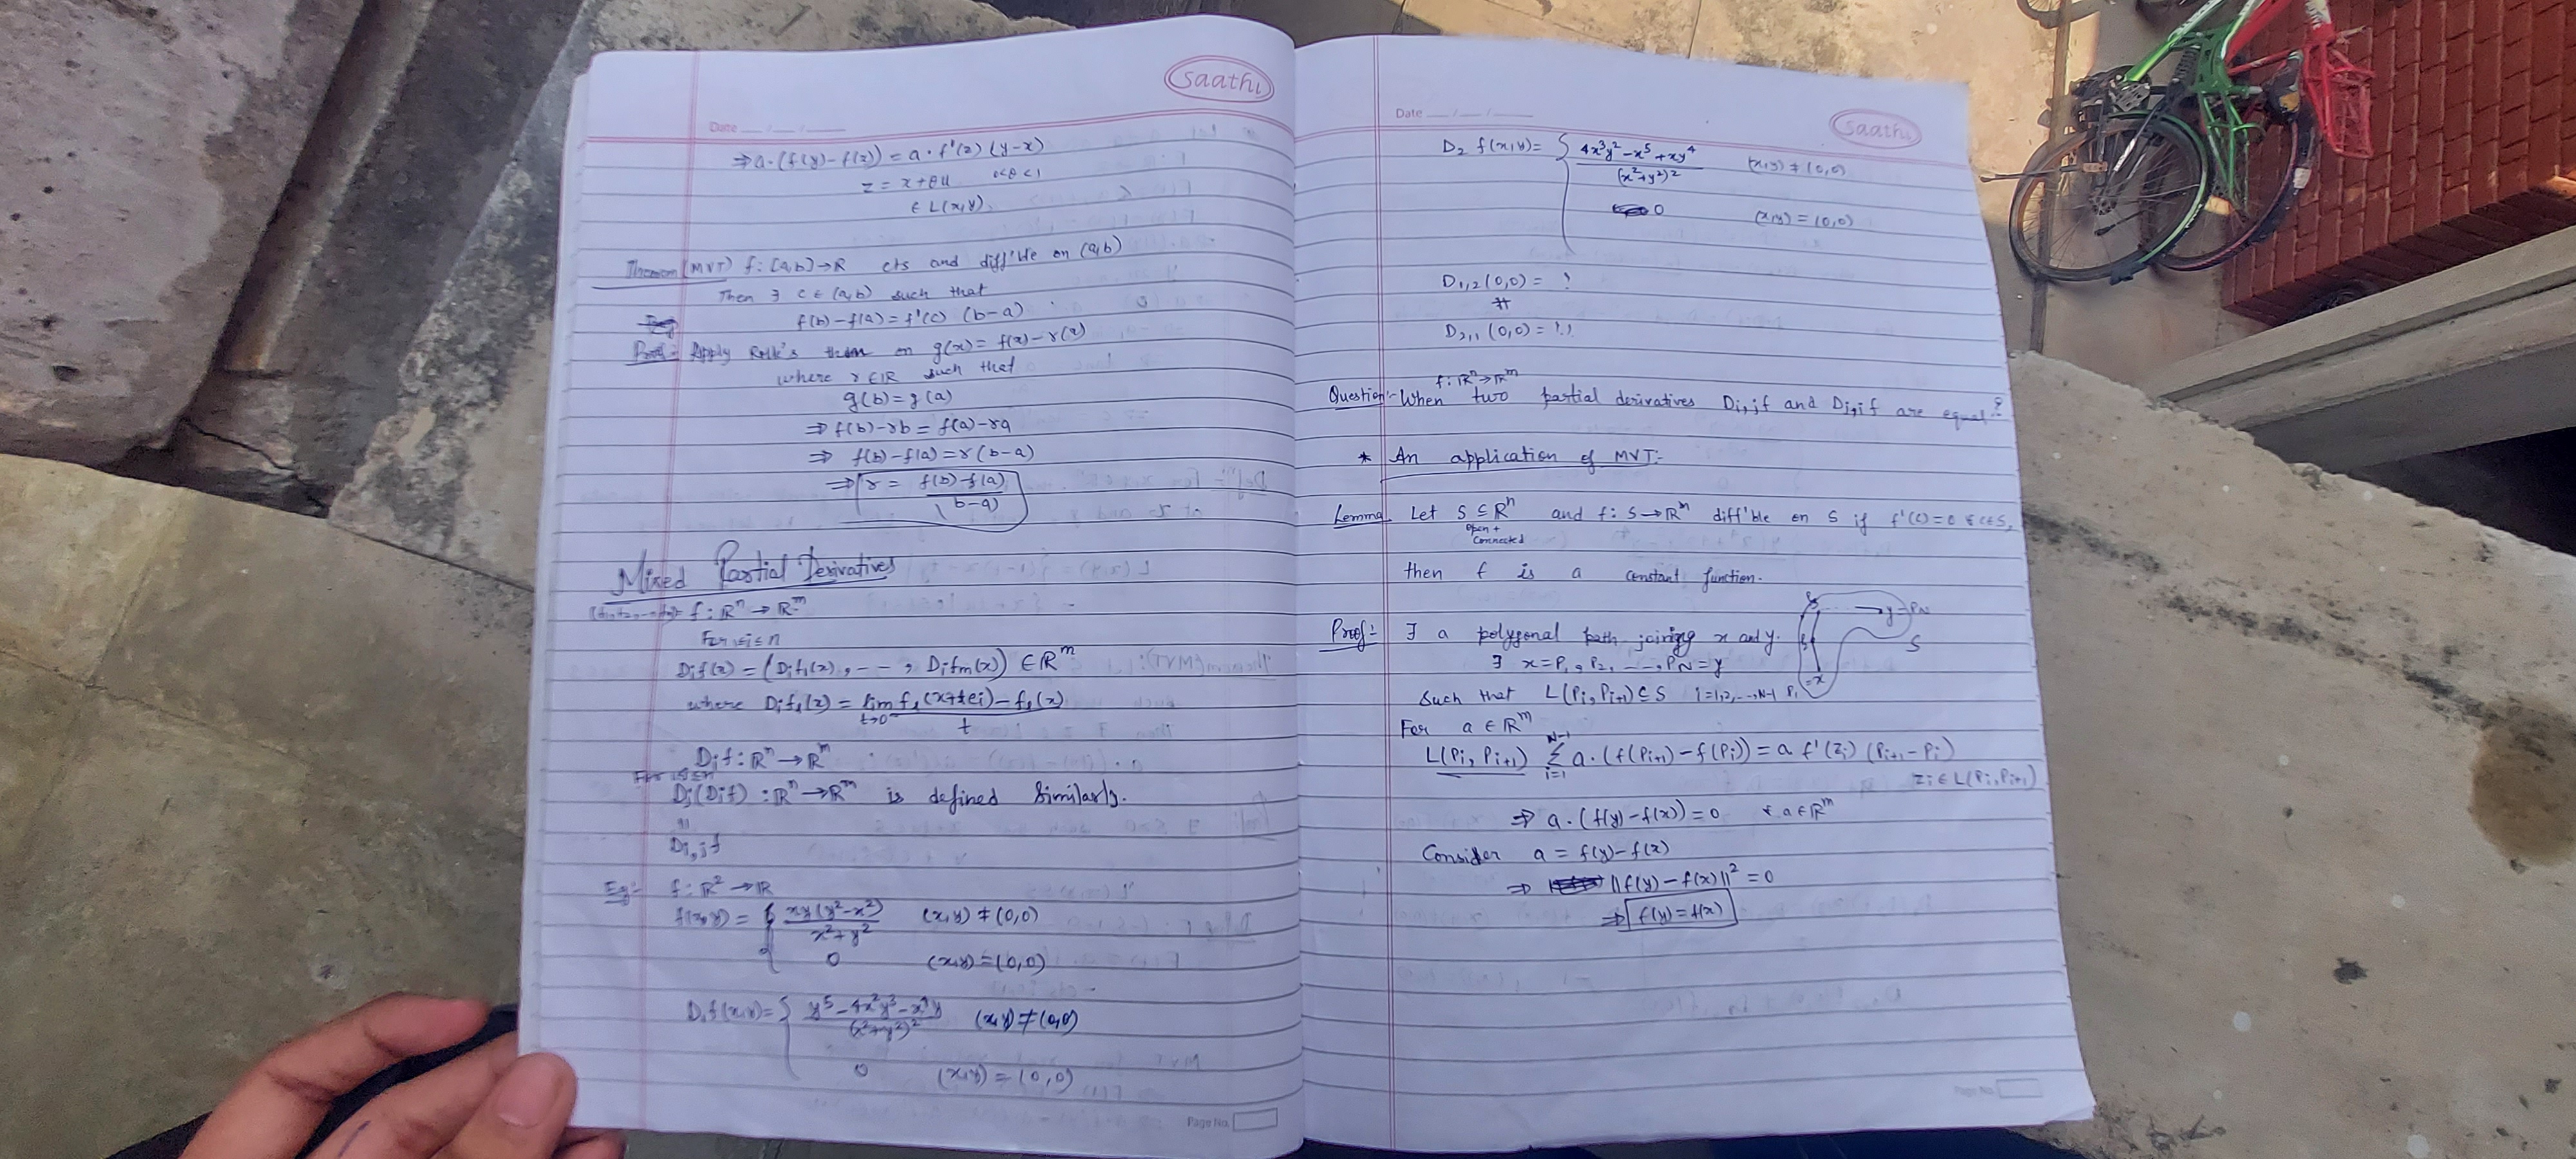 saathi
Date __/__/____
⇒ a·(f(y)-f(x)) = a·f'(z) (y-x)
z = x+θu 0<θ<1
∈ L(x,y).
Theorem (MVT) f: [a,b]→R cts and diff'ble on (a,b)
Then ∃ c∈(a,b) such that
f(b)-f(a) = f'(c) (b-a)
Proof:- Apply Rolle's thm on g(x) = f(x)-r(x)
where r∈R such that
g(b)=g(a)
⇒ f(b)-rb = f(a)-ra
⇒ f(b)-f(a) = r(b-a)
⇒ r = f(b)-f(a) / (b-a)
Mixed Partial Derivatives
f: Rⁿ → Rᵐ
For 1≤i≤n
Dif(x) = (Dif₁(x), --- , Difm(x)) ∈ Rᵐ
where Dif₁(x) = lim t→0 f₁(x+tei)-f₁(x) / t
Dif: Rⁿ→Rᵐ
For 1≤j≤n
Dj(Dif) : Rⁿ→Rᵐ is defined similarly.
=
Di,jf
Eg:- f: R² → R
f(x,y) = { xy(y²-x²) / x²+y² (x,y) ≠ (0,0)
0 (x,y) = (0,0)
D₁f(x,y) = { y⁵-4x²y³-x⁴y / (x²+y²)² (x,y) ≠ (0,0)
0 (x,y) = (0,0)
Page No.
Date __/__/____
saathi
D₂ f(x,y) = { 4x³y²-x⁵+xy⁴ / (x²+y²)² (x,y) ≠ (0,0)
0 (x,y) = (0,0)
D₁,₂(0,0) = !
≠
D₂,₁(0,0) = !!
f: Rⁿ→Rᵐ
Question:- When two partial derivatives Di,jf and Dj,if are equal?
* An application of MVT:-
Lemma Let S ⊆ Rⁿ and f: S→Rᵐ diff'ble on S if f'(c)=0 ∀ c∈S,
open +
connected
then f is a constant function.
Proof:- ∃ a polygonal path joining x and y.
y=PN
S
∃ x=P₁, P₂, ---, PN=y
Such that L(Pi, Pi+1) ⊆ S i=1,2,---,N-1
P₁=x
For a ∈ Rᵐ
L(Pi, Pi+1) N-1 Σ i=1 a·(f(Pi+1)-f(Pi)) = a f'(zi) (Pi+1-Pi)
zi ∈ L(Pi, Pi+1)
⇒ a·(f(y)-f(x)) = 0 ∀ a∈Rᵐ
Consider a = f(y)-f(x)
⇒ ||f(y)-f(x)||² = 0
⇒ f(y)=f(x)
Page No.